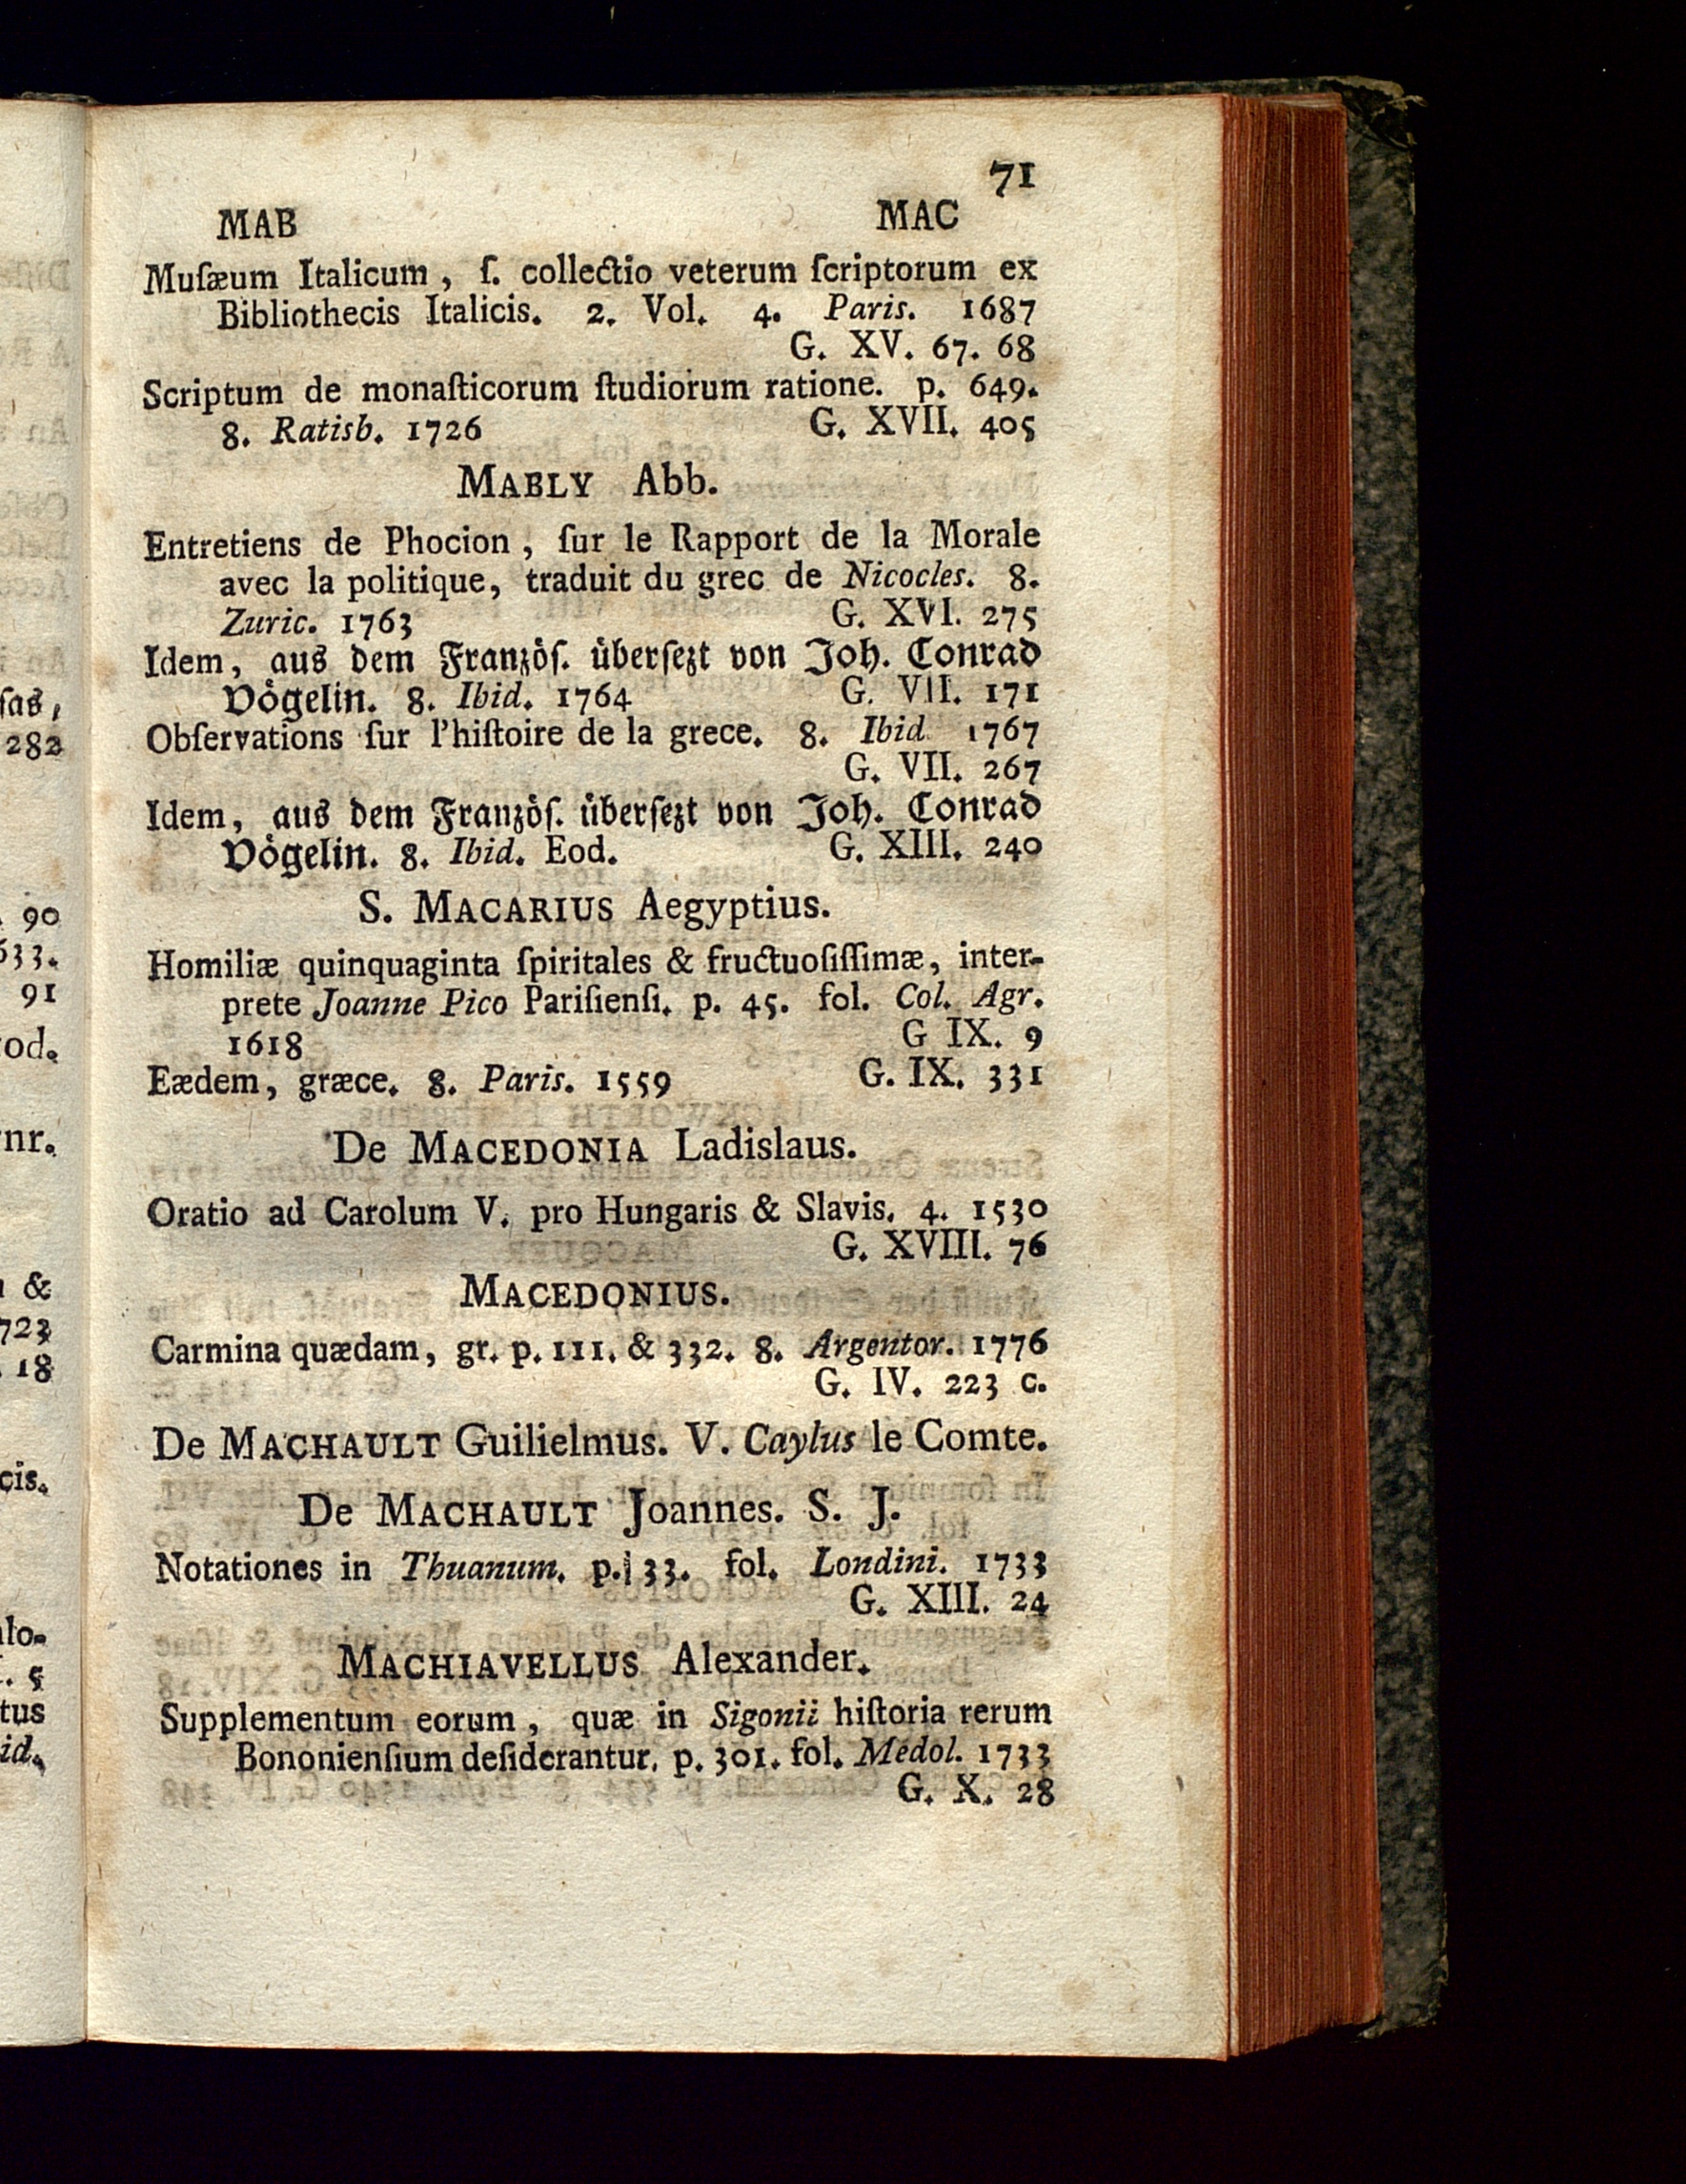 71
MAB MAC
Muſæum Italicum, ſ. collectio veterum ſcriptorum ex
Bibliothecis Italicis. 2. Vol. 4. Paris. 1687
G. XV. 67. 68
Scriptum de monaſticorum ſtudiorum ratione. p. 649.
8. Ratisb. 1726 G. XVII. 405
MABLY Abb.
Entretiens de Phocion, ſur le Rapport de la Morale
avec la politique, traduit du grec de Nicocles. 8.
Zuric. 1763 G. XVI. 275
Idem, aus dem Franzöſ. überſezt von Joh. Conrad
Vögelin. 8. Ibid. 1764 G. VII. 171
Obſervations ſur l'hiſtoire de la grece. 8. Ibid 1767
G. VII. 267
Idem, aus dem Franzöſ. überſezt von Joh. Conrad
Vögelin. 8. Ibid. Eod. G. XIII. 240
S. MACARIUS Aegyptius.
Homiliæ quinquaginta ſpiritales & fructuoſiſſimæ, inter-
prete Joanne Pico Pariſienſi. p. 45. fol. Col. Agr.
1618 G IX. 9
Eædem, græce. 8. Paris. 1559 G. IX. 331
De MACEDONIA Ladislaus.
Oratio ad Carolum V. pro Hungaris & Slavis. 4. 1530
G. XVIII. 76
MACEDONIUS.
Carmina quædam, gr. p. 111. & 332. 8. Argentor. 1776
G. IV. 223 c.
De MACHAULT Guilielmus. V. Caylus le Comte.
De MACHAULT Joannes. S. J.
Notationes in Thuanum. p. 33. fol. Londini. 1733
G. XIII. 24
MACHIAVELLUS Alexander.
Supplementum eorum, quæ in Sigonii hiſtoria rerum
Bononienſium deſiderantur. p. 301. fol. Medol. 1733
G. X. 28